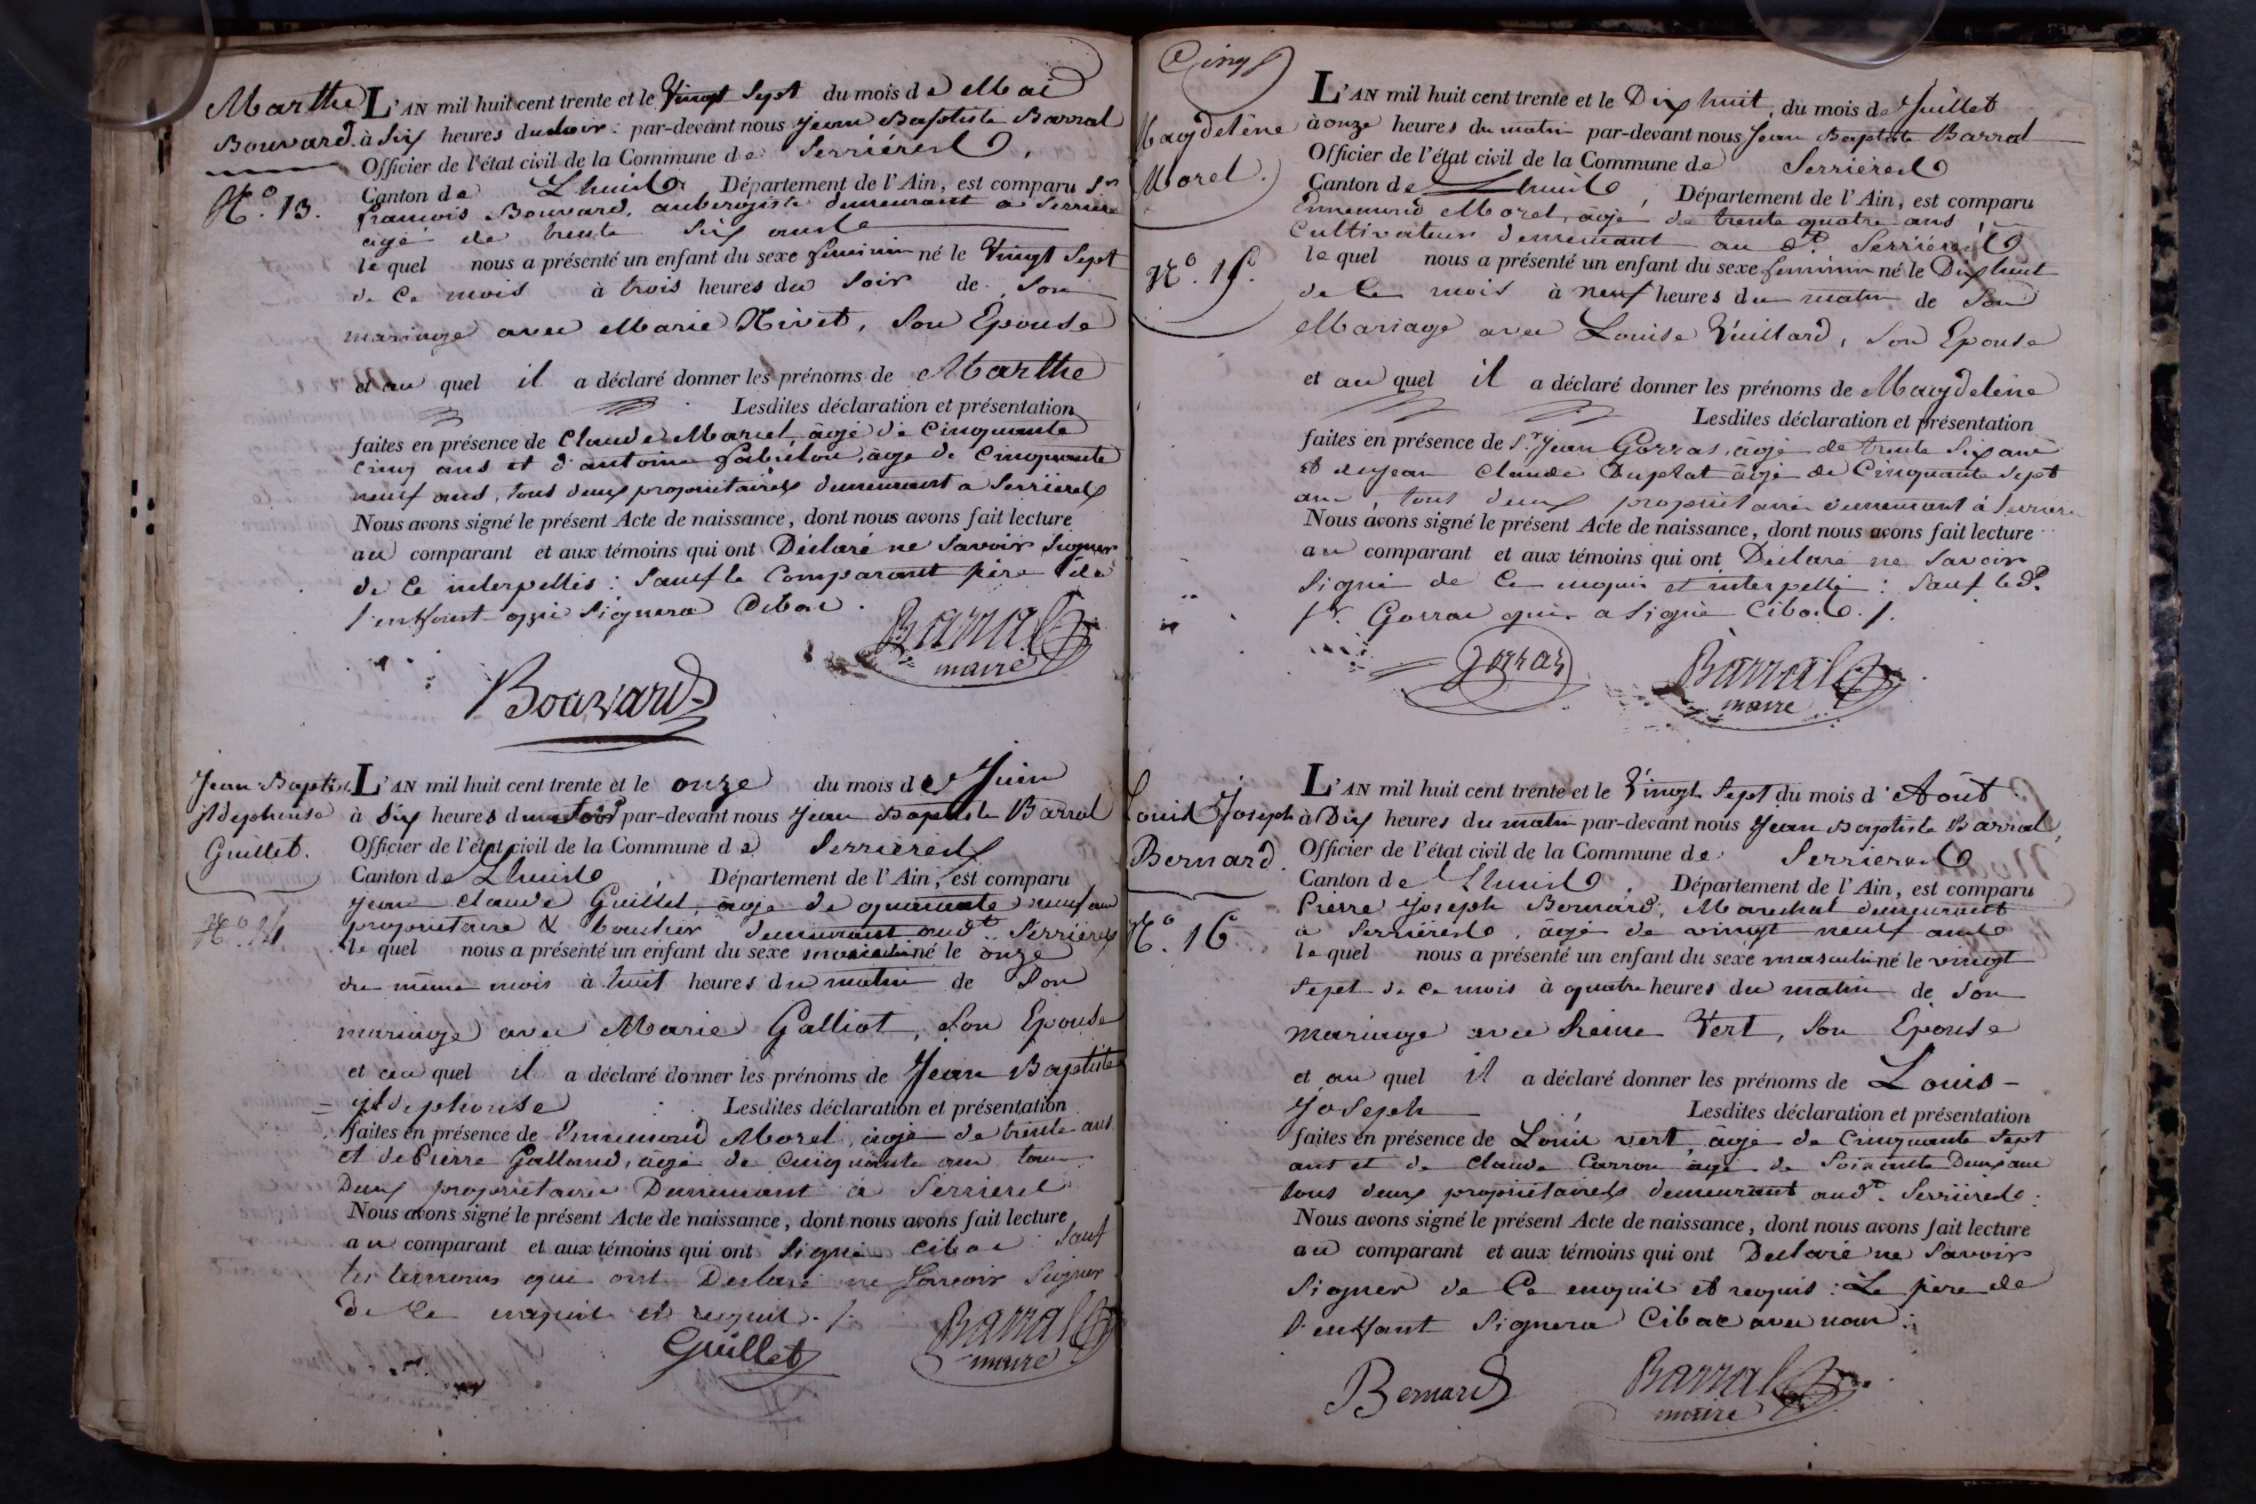 Marthe
Bouvard.
N.º 13.
L'AN mil huit cent trente et le Vingt Sept du mois de Mai
à Six heures du soir : par-devant nous Jean Baptiste Barral
Officier de l'état civil de la Commune de Serrières,
Canton de Lhuis, Département de l'Ain, est comparu Sr
francois Bouvard, aubergiste demeurant a Serriere
agé de trente Six ans
le quel nous a présenté un enfant du sexe feminin né le Vingt Sept
de Ce mois à trois heures du Soir de Son
mariage avec Marie Nivet, Son Epouse
et au quel il a déclaré donner les prénoms de Marthe
Lesdites déclaration et présentation
faites en présence de Claude Marcel, âgé de Cinquante
Cinq ans et d'antoine, âge de Cinquante
neuf ans, tous deux propriétaires demeurant a Serrieres
Nous avons signé le présent Acte de naissance, dont nous avons fait lecture
au comparant et aux témoins qui ont Déclaré ne Savoir Signer
de Ce interpellés : Sauf le Comparant père de
l'enfant qui Signera Cibac.
Barral
maire
Bouvard
Jean Baptiste
ildephonse
Guillet.
N.º 14.
L'AN mil huit cent trente et le onze du mois de Juin
à Six heures du soir par-devant nous Jean Baptiste Barral
Officier de l'état civil de la Commune de Serrières
Canton de Lhuis, Département de l'Ain, est comparu
Jean Claude Guillet, âgé de quarante neuf ans
propriétaire & demeurant aud.t Serrières
le quel nous a présenté un enfant du sexe masculin né le onze
du même mois à huit heures du matin de Son
mariage avec Marie Galliot, Son Epouse
et au quel il a déclaré donner les prénoms de Jean Baptiste
= ildephonse Lesdites déclaration et présentation
faites en présence de Ennemond Morel, âgé de trente ans
et de Pierre Galland, âgé de Cinquante ans tous
Deux propriétaires Demeurant à Serrieres
Nous avons signé le présent Acte de naissance, dont nous avons fait lecture
au comparant et aux témoins qui ont Signé Cibac Sauf
les temoins qui ont Declaré ne Savoir Signer
de Ce enquis et requis ./.
Guillet
Barral
maire
Cinq
Magdeléne
Morel.
N.º 15.
L'AN mil huit cent trente et le Dix huit, du mois de Juillet
à onze heures du matin par-devant nous Jean Baptiste Barral
Officier de l'état civil de la Commune de Serrières
Canton de Lhuis, Département de l'Ain, est comparu
Ennemond Morel, âgé de trente quatre ans
Cultivateur demeurant au dt. Serriéres
le quel nous a présenté un enfant du sexe feminin né le Dix huit
de Ce mois à neuf heures du matin de Son
Mariage avec Louise Vuillard, Son Epouse
et au quel il a déclaré donner les prénoms de Magdeléne
Lesdites déclaration et présentation
faites en présence de S.r Jean Gorras, âgé de trente Six ans
et de Jean Claude Duplat âgé de Cinquante Sept
ans, tous deux propriétaires demeurant à Serriere
Nous avons signé le présent Acte de naissance, dont nous avons fait lecture
au comparant et aux témoins qui ont Déclaré ne Savoir
Signé de Ce enquis et interpellé : Sauf le d.
Sr. Gorras qui a Signé Cibac ./.
Gorras
Barral
maire
Louis Joseph
Bernard.
N.º 16
L'AN mil huit cent trente et le Vingt Sept du mois d'Août
à Dix heures du matin par-devant nous Jean Baptiste Barral,
Officier de l'état civil de la Commune de Serrieres
Canton de Lhuis. Département de l'Ain, est comparu
Pierre Joseph Bernard, Marechal demeurant
a Serrieres, âgé de vingt neuf ans
le quel nous a présenté un enfant du sexe masculin né le vingt
Sept de ce mois à quatre heures du matin de Son
Mariage avec Reine Vert, Son Epouse
et au quel il a déclaré donner les prénoms de Louis-
Joseph Lesdites déclaration et présentation
faites en présence de Louis vert, âgé de Cinquante Sept
ans et de Claude Carron âgé de Soixante Deux ans
tous deux propriétaires demeurant aud.t Serriéres.
Nous avons signé le présent Acte de naissance, dont nous avons fait lecture
au comparant et aux témoins qui ont Declaré ne Savoir
Signer de Ce enquis et requis : Le père de
l'enfant Signera Cibac avec nous :
Bernard
Barral
maire